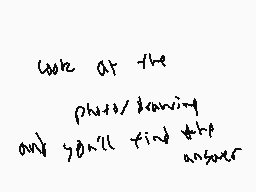 look at the
photo/drawing
and you'll find the
answer